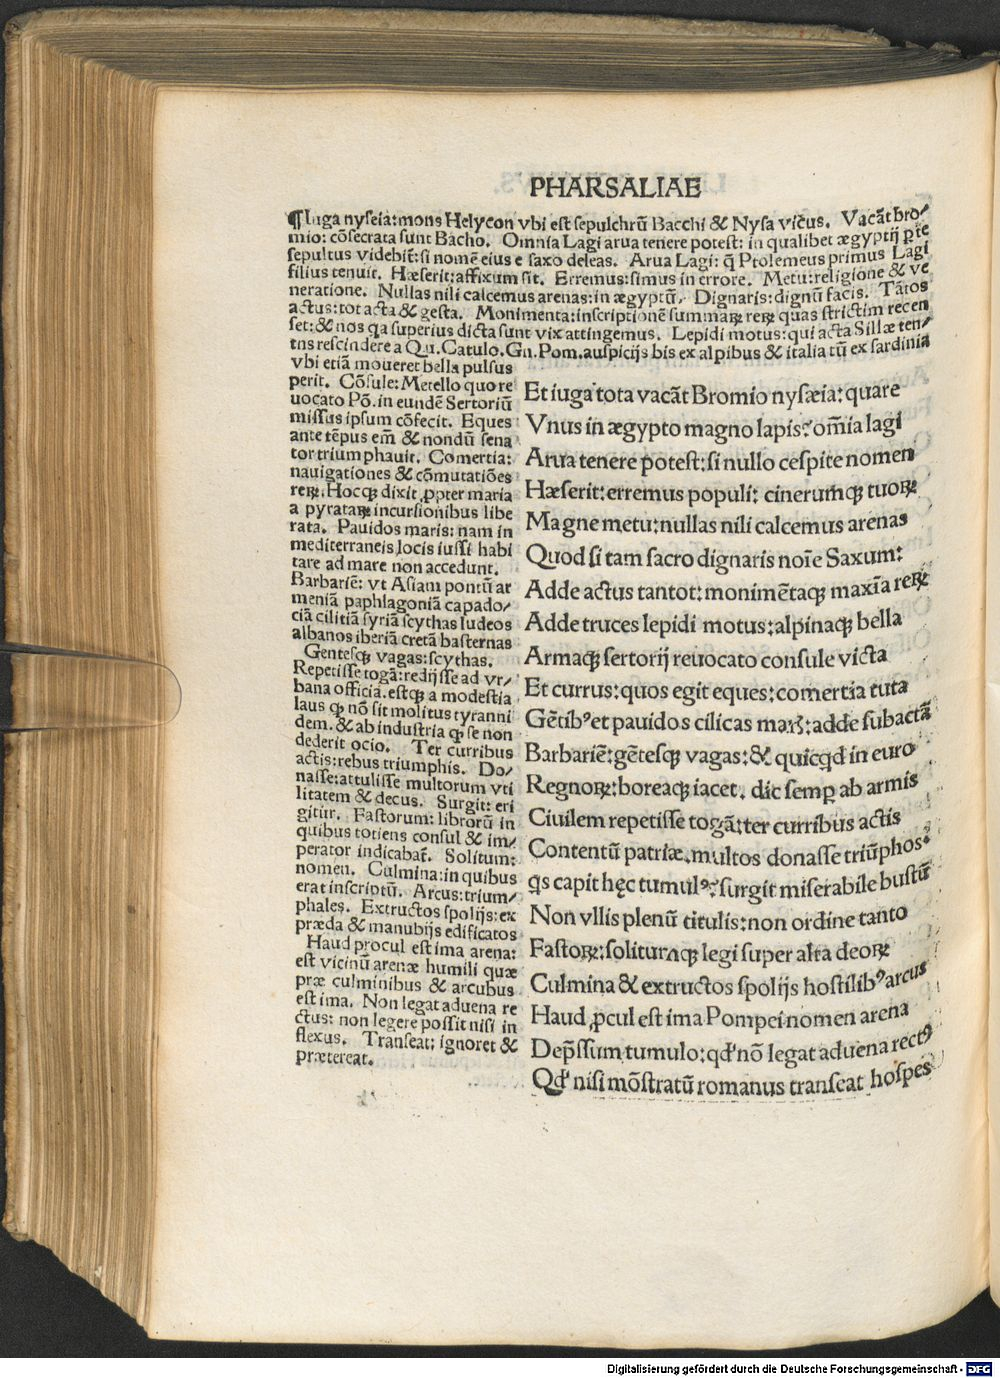 PHARSALIAE
¶Iuga nyseia: mons Helycon vbi est sepulchrū Bacchi & Nysa vicus. Vacāt bro/
mio: cōsecrata sunt Bacho. Omnia Lagi arua tenere potest: in qualibet ægyptij pte
sepultus videbit̄: si nomē eius e saxo deleas. Arua Lagi: q̄ Ptolemeus primus Lagi
filius tenuit. Hæserit: affixum sit. Erremus: simus in errore. Metu: religione & ve
neratione. Nullas nili calcemus arenas: in ægyptū. Dignaris: dignū facis. Tātos
actus: tot acta & gesta. Monimenta: inscriptionē summaꝝ reꝝ quas strictim recen
set: & nos qa superius dicta sunt vix attingemus. Lepidi motus: qui acta Sillæ ten/
tns rescindere a Qu. Catulo. Gn. Pom. auspicijs bis ex alpibus & italia tū ex sardinia
vbi etiā moueret bella pulsus
perit. Cōsule: Metello quo re
uocato Pō. in eundē Sertoriū
missus ipsum cōfecit. Eques
ante tēpus em̄ & nondū sena
tor triumphauit. Comertia:
nauigationes & cōmutatiōes
reꝝ. Hocqꝫ dixit ꝓpter maria
a pyrataꝝ incursionibus libe
rata. Pauidos maris: nam in
mediterraneis locis iussi habi
tare ad mare non accedunt.
Barbariē: vt Asiani pontū ar
meniā paphlagoniā capado/
ciā cilitiā syriā scythas Iudeos
albanos iberiā cretā basternas
Gentesqꝫ vagas: scythas.
Repetisse togā: redijsse ad vr/
bana officia. estqꝫ a modestia
laus qꝫ nō sit molitus tyranni
dem. & ab industria qꝫ se non
dederit ocio. Ter curribus
actis: rebus triumphis. Do/
nasse: attulisse multorum vti
litatem & decus. Surgit: eri
gitur. Fastorum: librorū in
quibus totiens consul & im/
perator indicabat̄. Solitum:
nomen. Culmina: in quibus
erat inscriptū. Arcus: trium/
phales. Extructos spolijs: ex
præda & manubijs edificatos
Haud procul est ima arena:
est vicinū arenæ humili quæ
præ culminibus & arcubus
est ima. Non legat aduena re
ctus: non legere possit nisi in
flexus. Transeat: ignoret &
prætereat.
Et iuga tota vacāt Bromio nysæia: quare
Vnus in ægypto magno lapis? om̄ia lagi
Arua tenere potest: si nullo cespite nomen
Hæserit: erremus populi: cinerumqꝫ tuoꝝ
Magne metu: nullas nili calcemus arenas
Quod si tam sacro dignaris noīe Saxum:
Adde actus tantot: monimētaqꝫ maxīa reꝝ
Adde truces lepidi motus: alpinaqꝫ bella
Armaqꝫ sertorij reuocato consule victa
Et currus: quos egit eques: comertia tuta
Gētibꝰ et pauidos cilicas marꝭ: adde subactā
Barbariē: gētesqꝫ vagas: & quicqd in euro
Regnoꝝ: boreaqꝫ iacet. dic semp ab armis
Ciuilem repetisse togā: ter curribus actis
Contentū patriæ. multos donasse triūphosꝰ
qs capit hęc tumulꝰ? surgit miserabile bustū
Non vllis plenū titulis: non ordine tanto
Fastoꝝ: soliturnqꝫ legi super alta deoꝝ
Culmina & extructos spolijs hostilibꝰ arcus
Haud ꝓcul est ima Pompei nomen arena
Depssum tumulo: qd' nō legat aduena rectꝰ
Qd' nisi mōstratū romanus transeat hospes
Digitalisierung gefördert durch die Deutsche Forschungsgemeinschaft - DFG